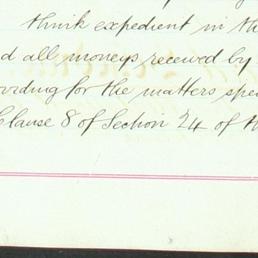 think expedient in th
d all moneys received by
oviding for the matters spe
Clause 8 of Section 24 of th